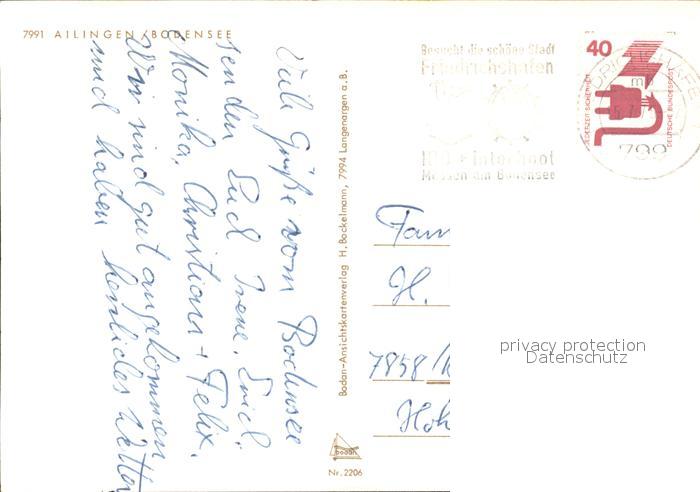 7991 AILINGEN / BODENSEE
Viele Grüße vom Bodensee
senden Euch Irene, Erich,
Monika, Christian + Felix.
Wir sind gut angekommen
und haben herrliches Wetter
Bodan-Ansichtskartenverlag H. Bockelmann, 7994 Langenargen a. B.
bodan
Nr. 2206
Besucht die schöne Stadt
Friedrichshafen
IBO + interboot
Messen am Bodensee
40
JEDERZEIT SICHERHEIT
DEUTSCHE BUNDESPOST
799
Fam
H.
7858/
Hoh
privacy protection
Datenschutz